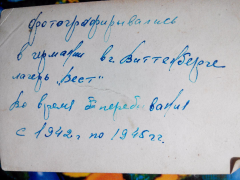 фотографирывались
в германии в г. Виттенберге
лагерь „Вест"
Во время перебивания
с 1942 г по 1945 гг.